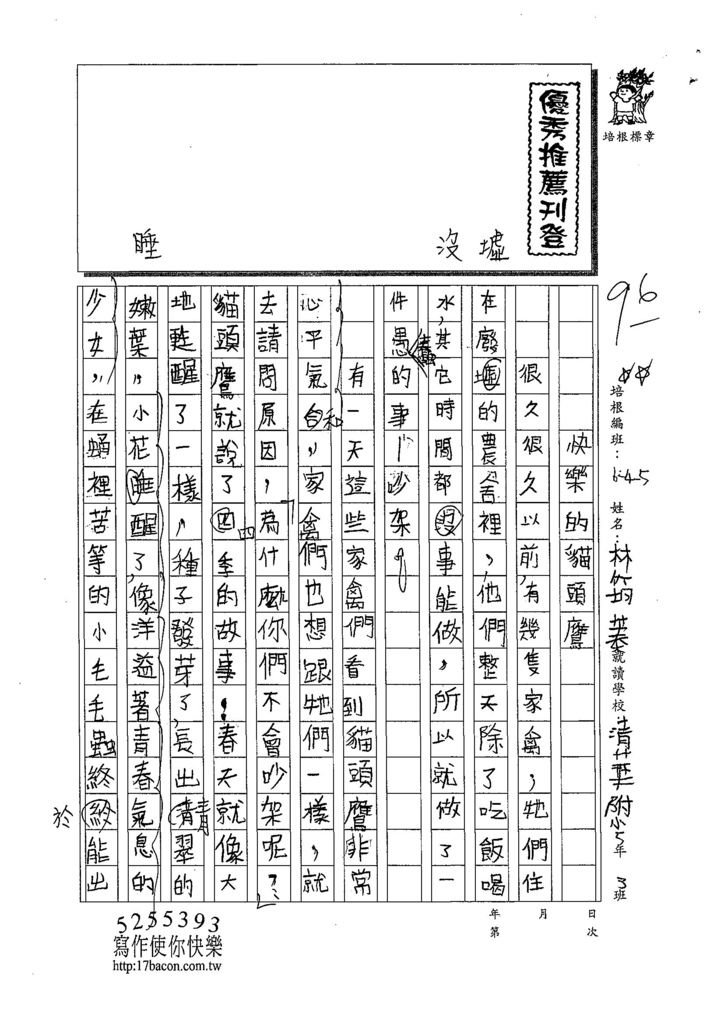 培根標章
優秀推薦刊登
墟
沒
睡
96
培根編班：
6-45
姓名：林筠
就讀學校：清華附小5年3班
日
次
月
年
第
快樂的貓頭鷹
很久很久以前，有幾隻家禽，牠們住
在廢墟的農舍裡，他們整天除了吃飯喝
水，其它時間都沒事能做，所以就做了一
件愚蠢的事—吵架。
有一天這些家禽們看到貓頭鷹非常
心平氣和，家禽們也想跟牠們一樣，就
去請問原因，「為什麼你們不會吵架呢？」
貓頭鷹就說了四季的故事：春天就像大
地甦醒了一樣，種子發芽了，長出青翠的
嫩葉，小花睡醒了，像洋溢著青春氣息的
少女，在蛹裡苦等的小毛毛蟲終於能出
四
青
於
5255393
寫作使你快樂
http:17bacon.com.tw